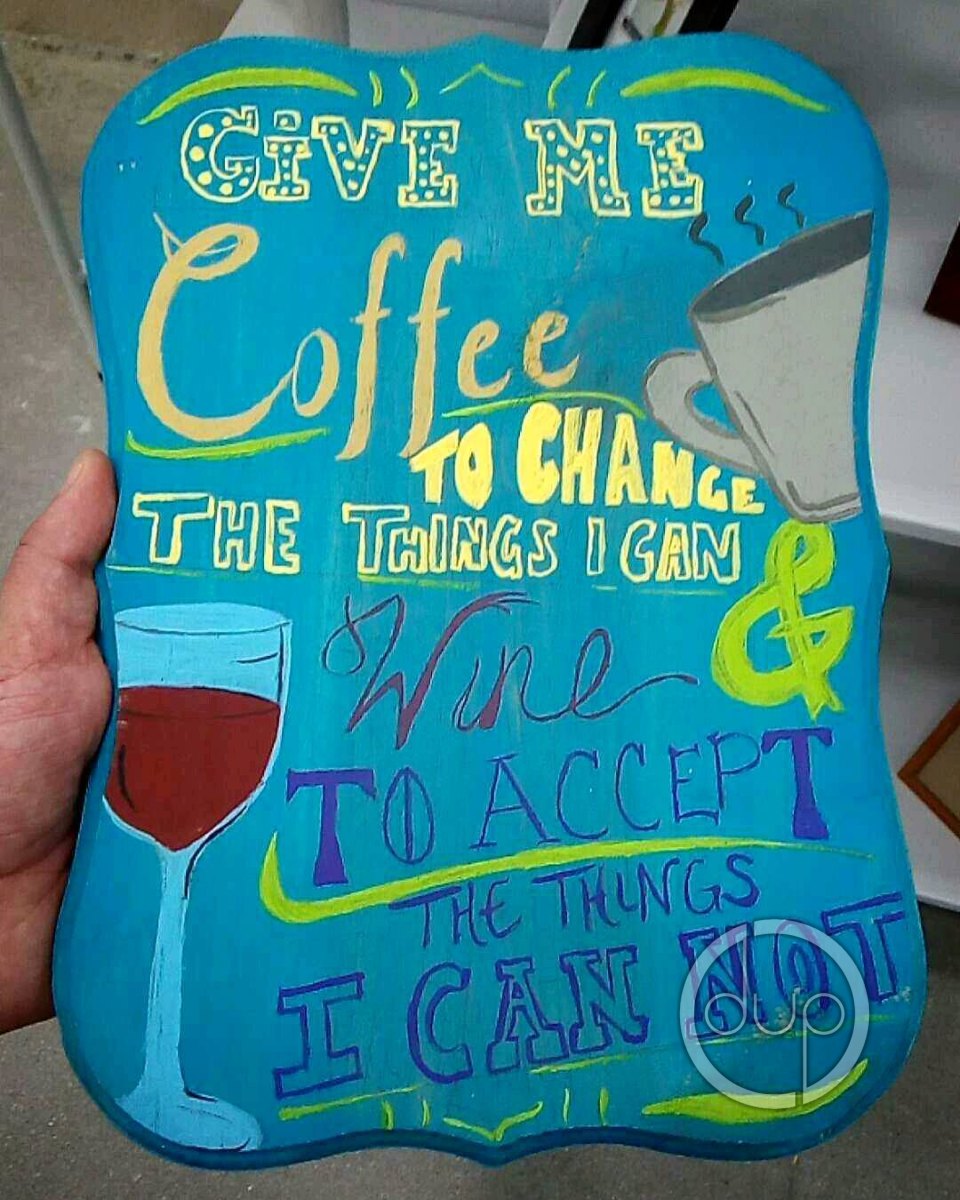 GiVE ME
Coffee
TO CHANGE
THE THINGS I CAN
&
Wine
TO ACCEPT
THE THINGS
I CAN NOT
dup